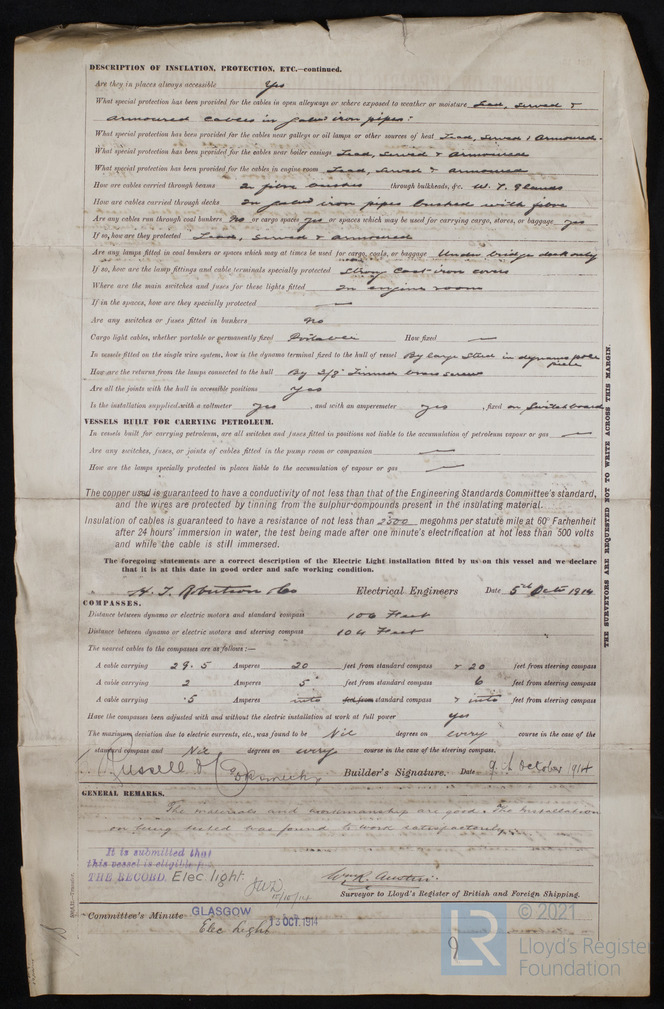 DESCRIPTION OF INSULATION, PROTECTION, ETC.—continued.
Are they in places always accessible Yes
What special protection has been provided for the cables in open alleyways or where exposed to weather or moisture Lead, served &
armoured cables in galvd iron pipes.
What special protection has been provided for the cables near galleys or oil lamps or other sources of heat Lead, served & armoured.
What special protection has been provided for the cables near boiler casings Lead, served & armoured
What special protection has been provided for the cables in engine room Lead, served & armoured
How are cables carried through beams In fibre bushes through bulkheads, &c. W. T. Glands
How are cables carried through decks In galvd iron pipes bushed with fibre
Are any cables run through coal bunkers No or cargo spaces yes or spaces which may be used for carrying cargo, stores, or baggage yes
If so, how are they protected Lead, served & armoured
Are any lamps fitted in coal bunkers or spaces which may at times be used for cargo, coals, or baggage Under bridge deck only
If so, how are the lamp fittings and cable terminals specially protected Strong Cast iron covers
Where are the main switches and fuses for these lights fitted In engine room
If in the spaces, how are they specially protected —
Are any switches or fuses fitted in bunkers No
Cargo light cables, whether portable or permanently fixed Portable How fixed —
In vessels fitted on the single wire system, how is the dynamo terminal fixed to the hull of vessel By large Stud in dynamo pole
piece
How are the returns from the lamps connected to the hull By 3/8" Tinned brass screws
Are all the joints with the hull in accessible positions Yes
Is the installation supplied with a voltmeter yes, and with an amperemeter yes, fixed on Switchboard
VESSELS BUILT FOR CARRYING PETROLEUM.
In vessels built for carrying petroleum, are all switches and fuses fitted in positions not liable to the accumulation of petroleum vapour or gas —
Are any switches, fuses, or joints of cables fitted in the pump room or companion —
How are the lamps specially protected in places liable to the accumulation of vapour or gas —
The copper used is guaranteed to have a conductivity of not less than that of the Engineering Standards Committee's standard,
and the wires are protected by tinning from the sulphur compounds present in the insulating material.
Insulation of cables is guaranteed to have a resistance of not less than 2500 megohms per statute mile at 60° Farhenheit
after 24 hours' immersion in water, the test being made after one minute's electrification at not less than 500 volts
and while the cable is still immersed.
The foregoing statements are a correct description of the Electric Light installation fitted by us on this vessel and we declare
that it is at this date in good order and safe working condition.
H. J. Robertson & Co Electrical Engineers Date 5th Octr 1914
COMPASSES.
Distance between dynamo or electric motors and standard compass 106 Feet
Distance between dynamo or electric motors and steering compass 104 Feet
The nearest cables to the compasses are as follows:—
A cable carrying 29.5 Amperes 20 feet from standard compass & 20 feet from steering compass
A cable carrying 2 Amperes 5 feet from standard compass 6 feet from steering compass
A cable carrying .5 Amperes into feet from standard compass & into feet from steering compass
Have the compasses been adjusted with and without the electric installation at work at full power yes
The maximum deviation due to electric currents, etc., was found to be Nil degrees on every course in the case of the
standard compass and Nil degrees on every course in the case of the steering compass.
Russell & Co Builder's Signature. Date 9th October 1914
GENERAL REMARKS.
The materials and workmanship are good. The installation
on being tested was found to work satisfactorily.
It is submitted that
this vessel is eligible for
THE RECORD. Elec. light.
JWD
15/10/14
Wm R. Austin
Surveyor to Lloyd's Register of British and Foreign Shipping.
Committee's Minute GLASGOW 13 OCT. 1914
Elec Light
THE SURVEYORS ARE REQUESTED NOT TO WRITE ACROSS THIS MARGIN.
© 2021
LR Lloyd's Register
Foundation